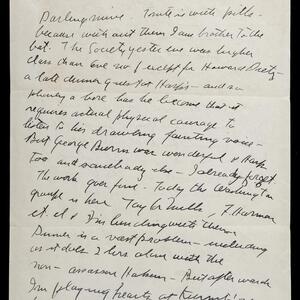 Darling mine - Tonite is with pills -
because without them I am brother to the
bat. The Society yester eve was higher
class than ever so (except for Howard Dietz -
a late dinner guest at Harpo's - and so
a bore he has become that it
requires actual physical courage to
listen to his drawling fainting voice -
But George Burns was wonderful & Harpo
too and somebody else - I already forget.
The work goes fine. Today the Washington
group is here Taylor Mills, T. Harmon
et al & I'm lunching with them
Dinner is a vast problem - including
as it does 2 hrs alone with the
non - Hakim - But afterwards
I'm playing hearts at